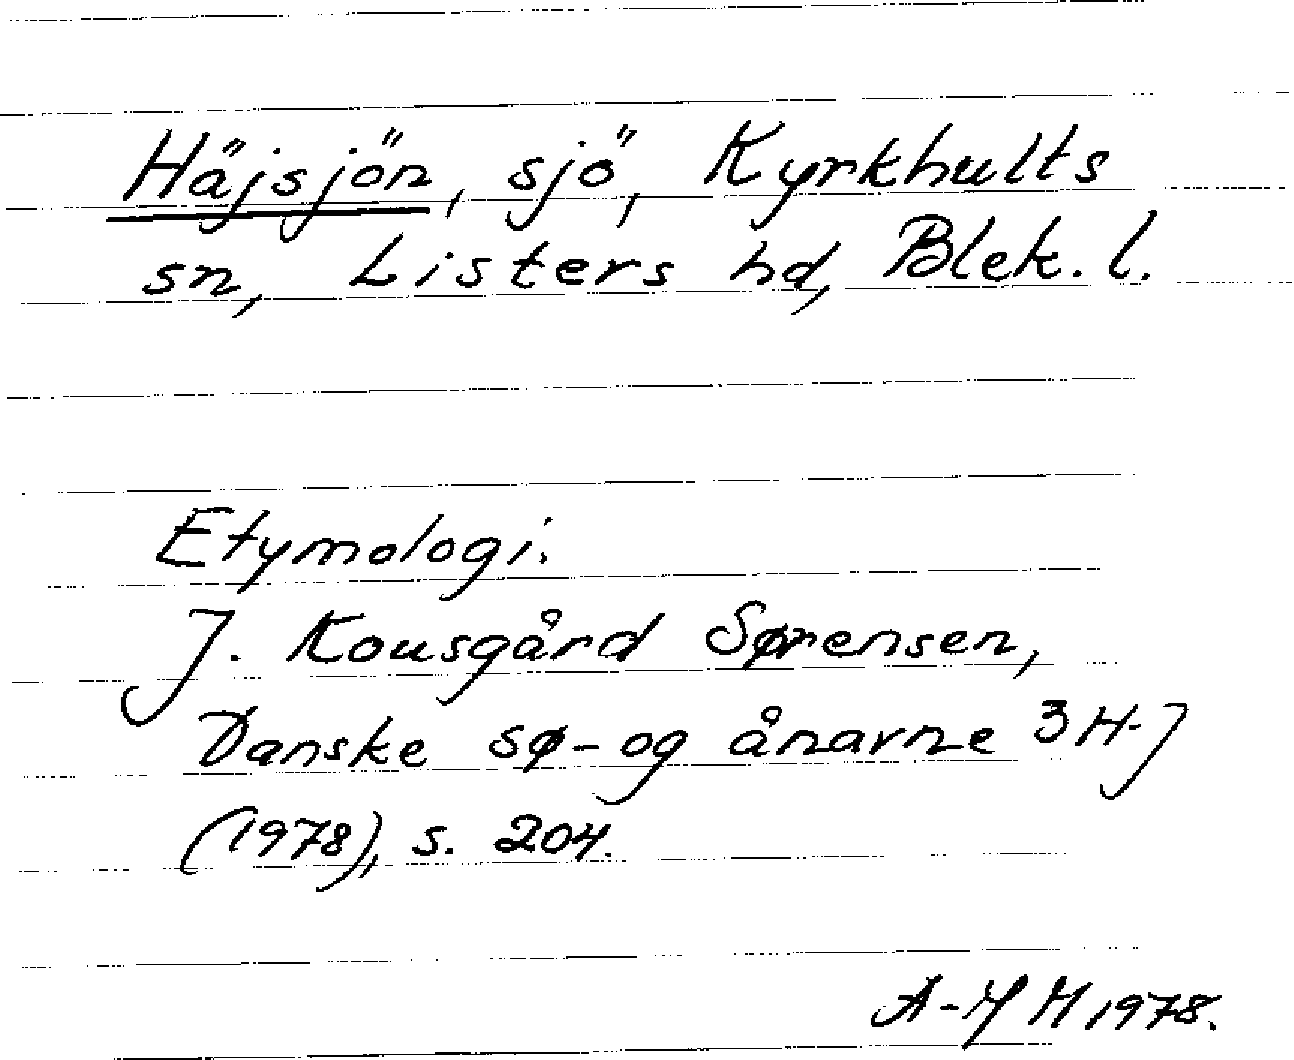 Häjsjön, sjö, Kyrkhults
sn, Listers hd, Blek. l.
Etymologi.
J. Kousgård Sørensen,
Danske sø- og ånavne 3 H-J
(1978), s. 204.
A-Y M 1978.